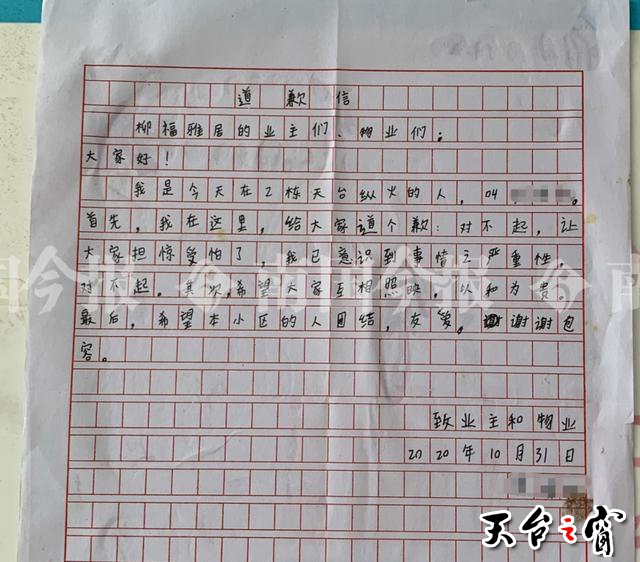 道歉信
柳福雅居的业主们、物业们：
大家好！
我是今天在2栋天台纵火的人，04
首先，我在这里，给大家道个歉：对不起，让
大家担惊受怕了，我已意识到事情之严重性
对不起。其次，希望大家互相照映，以和为贵，
最后，希望本小区的人团结，友爱，谢谢包
容。
致业主和物业
2020年10月31日
南国今报
天台之窗